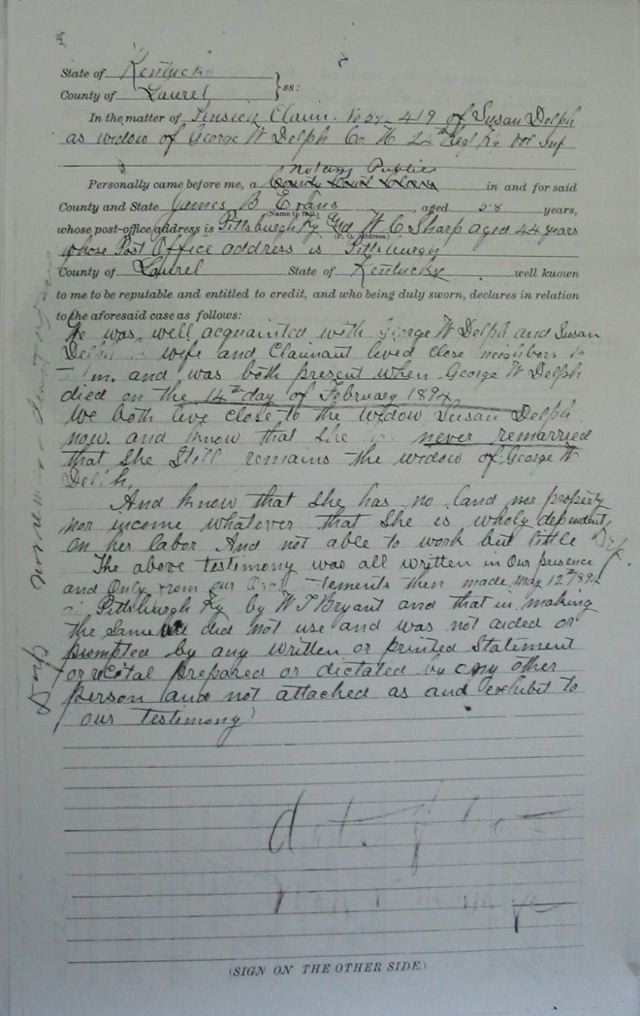 State of Kentucky
County of Laurel } ss:
In the matter of Pension Claim. No 419 of Susan Delph
as widow of George W Delph Co H 24th Regt Ky Vol Inf
Notary Public
Personally came before me, a County Court Clerk in and for said
County and State James B Evans, aged 28 years,
(Name in full.)
whose post-office address is Pittsburgh Ky And W C Sharp aged 44 years
(P. O. Address.)
whose Post Office address is Pittsburgh
County of Laurel State of Kentucky well known
to me to be reputable and entitled to credit, and who being duly sworn, declares in relation
to the aforesaid case as follows:
He was well acquainted with George W Delph and Susan
Delph wife and Claimant lived close neighbors to
m. and was both present when George W Delph
died on the 14th day of February
We both live close to the widow Susan Delph
now. and know that she has never remarried
that She Still remains the widow of George W
Delph.
And Know that She has no land nor property
nor income whatever that She is wholy dependent
on her labor And not able to work but little
The above testimony was all written in Our presence
and Only from our Oral Statements then made May 12th
at Pittsburgh Ky by W T Bryant and that in making
the Same We did not use and was not aided or
prompted by any written or printed Statement
or recital prepared or dictated by any other
person and not attached as and exhibit to
our testimony
(SIGN ON THE OTHER SIDE.)